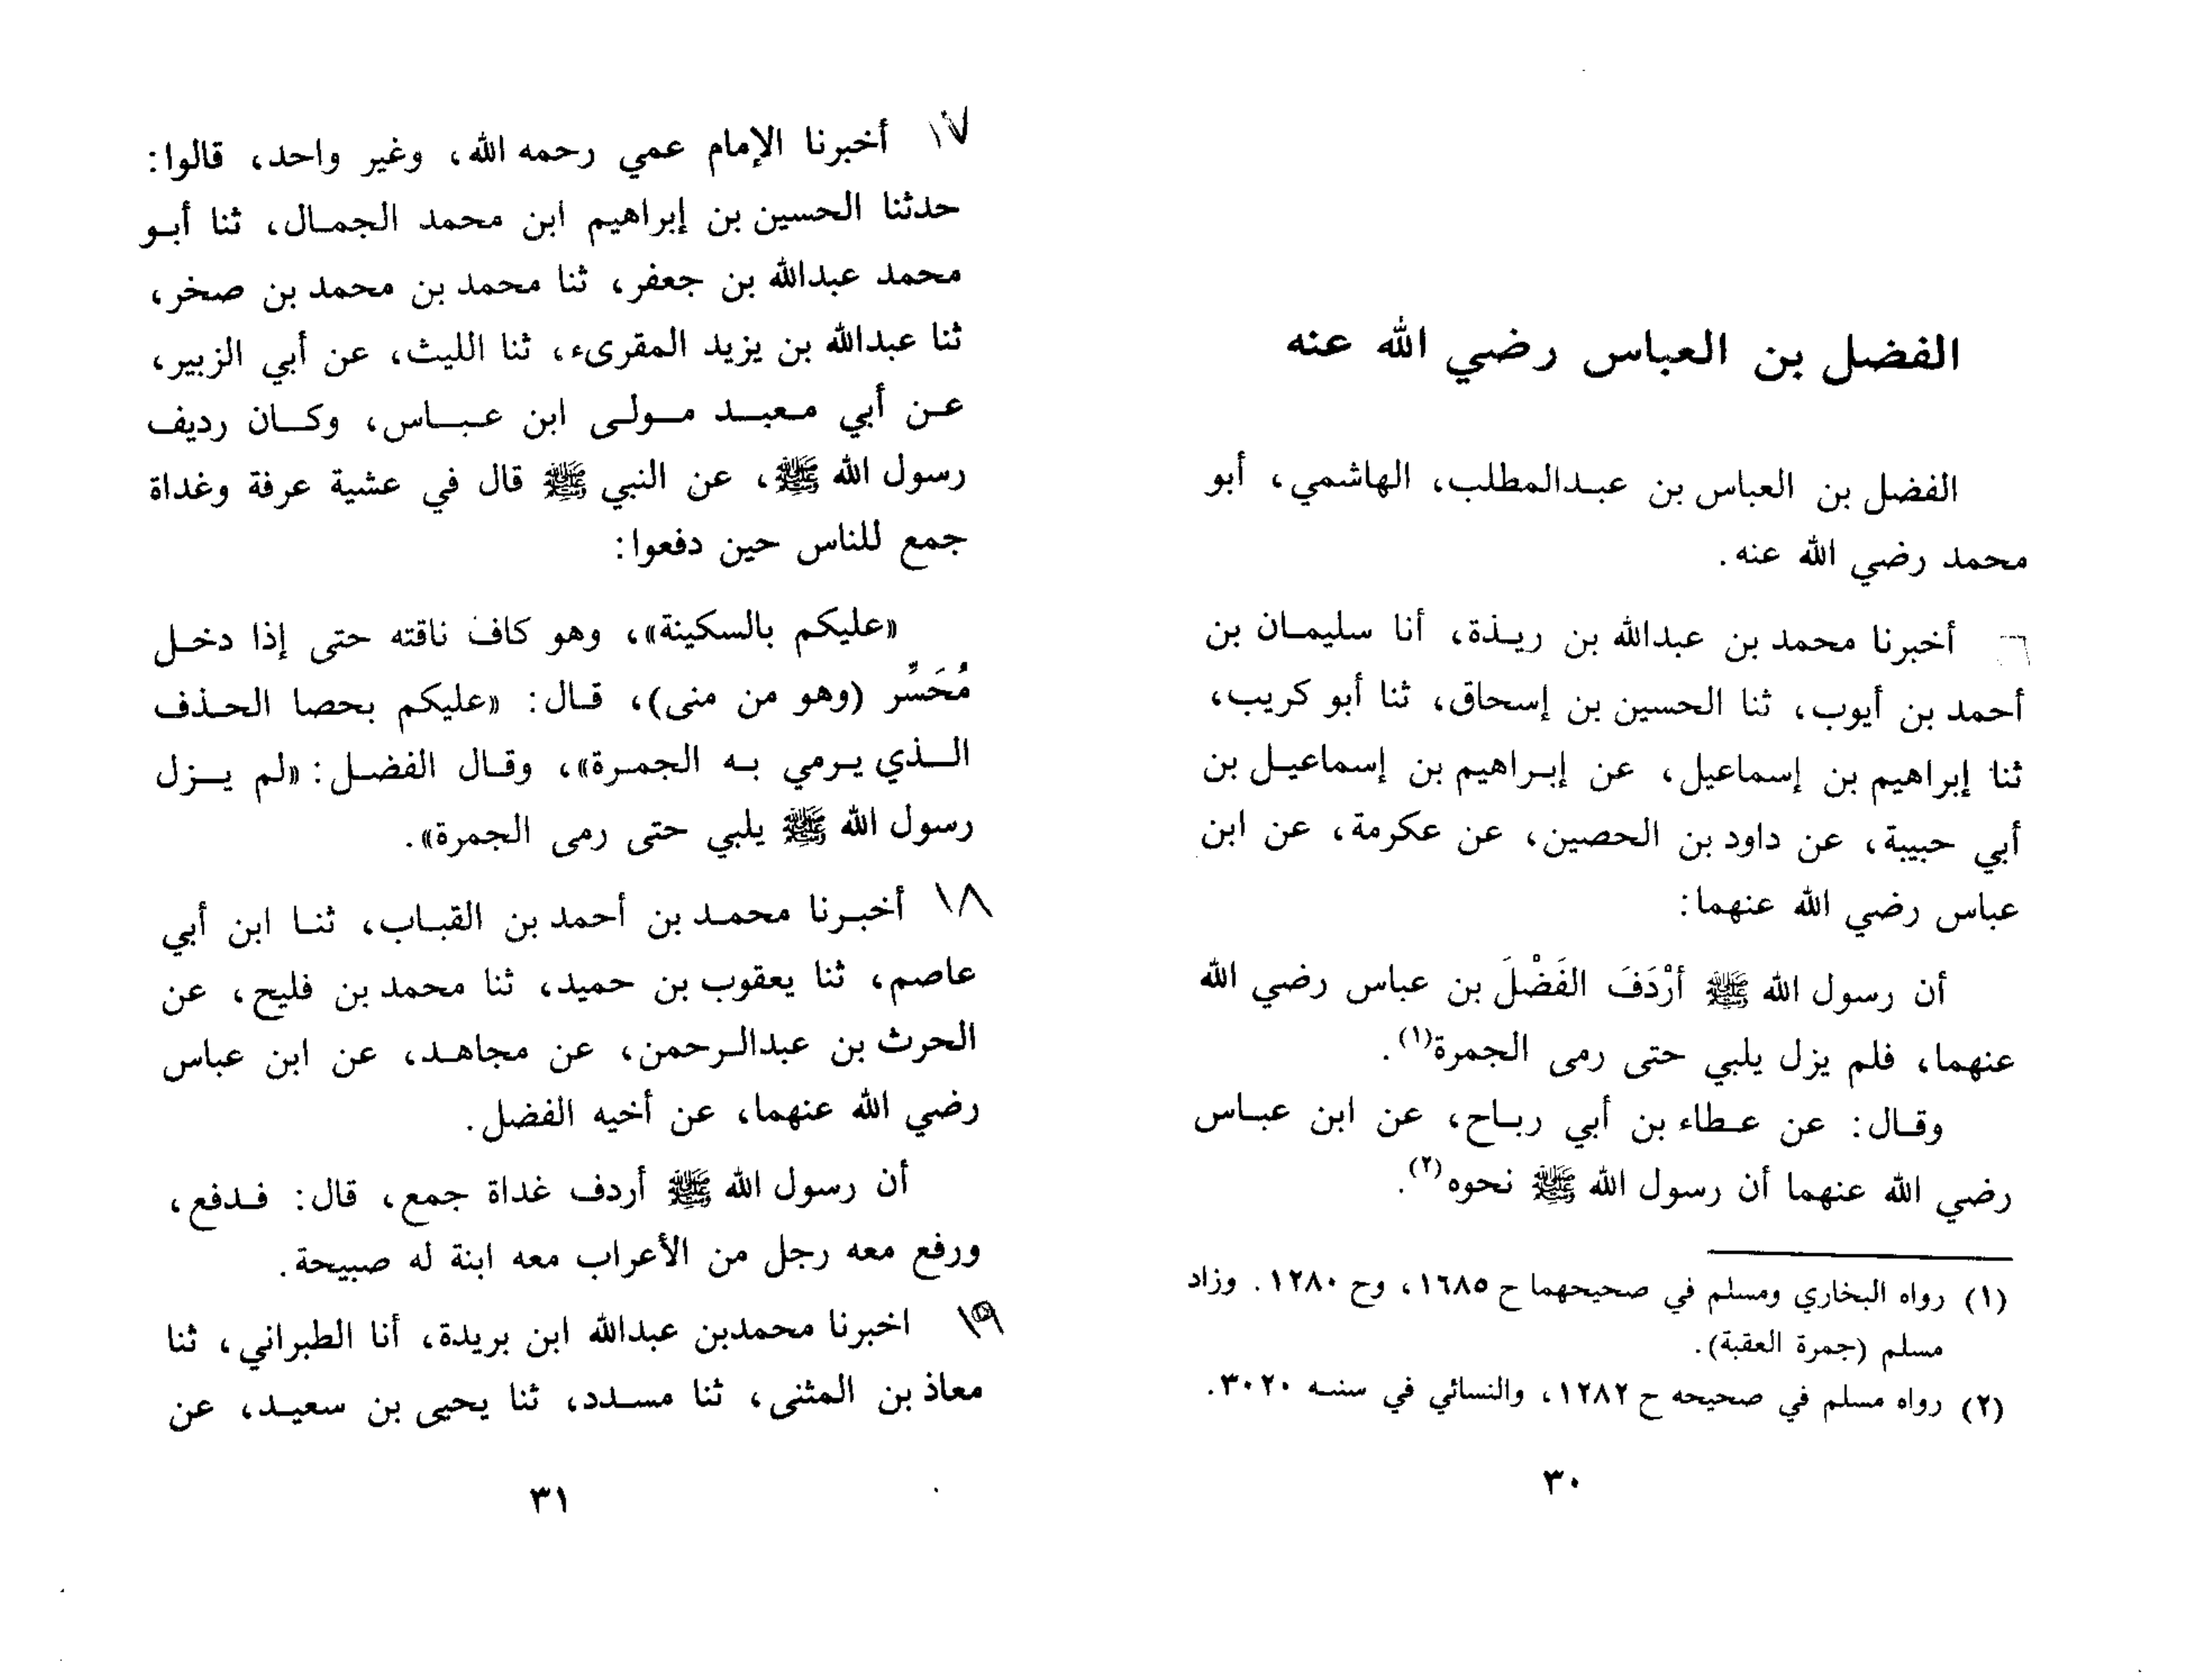 الفضل بن العباس رضي الله عنه
الفضل بن العباس بن عبدالمطلب، الهاشمي، أبو
محمد رضي الله عنه.
أخبرنا محمد بن عبدالله بن ريذة، أنا سليمان بن
أحمد بن أيوب، ثنا الحسين بن إسحاق، ثنا أبو كريب،
ثنا إبراهيم بن إسماعيل، عن إبراهيم بن إسماعيل بن
أبي حبيبة، عن داود بن الحصين، عن عكرمة، عن ابن
عباس رضي الله عنهما:
أن رسول الله ﷺ أرْدَفَ الفَضْلَ بن عباس رضي الله
عنهما، فلم يزل يلبي حتى رمى الجمرة(١).
وقال: عن عطاء بن أبي رباح، عن ابن عباس
رضي الله عنهما أن رسول الله ﷺ نحوه(٢).
(١) رواه البخاري ومسلم في صحيحهما ح ١٦٨٥، وح ١٢٨٠. وزاد
مسلم (جمرة العقبة).
(٢) رواه مسلم في صحيحه ح ١٢٨٢، والنسائي في سننه ٣٠٢٠.
٣٠
١٧ أخبرنا الإمام عمي رحمه الله، وغير واحد، قالوا:
حدثنا الحسين بن إبراهيم ابن محمد الجمال، ثنا أبو
محمد عبدالله بن جعفر، ثنا محمد بن محمد بن صخر،
ثنا عبدالله بن يزيد المقرىء، ثنا الليث، عن أبي الزبير،
عن أبي معبد مولى ابن عباس، وكان رديف
رسول الله ﷺ، عن النبي ﷺ قال في عشية عرفة وغداة
جمع للناس حين دفعوا:
«عليكم بالسكينة»، وهو كاف ناقته حتى إذا دخل
مُحَسِّر (وهو من منى)، قال: «عليكم بحصا الحذف
الذي يرمي به الجمرة»، وقال الفضل: «لم يزل
رسول الله ﷺ يلبي حتى رمى الجمرة».
١٨ أخبرنا محمد بن أحمد بن القباب، ثنا ابن أبي
عاصم، ثنا يعقوب بن حميد، ثنا محمد بن فليح، عن
الحرث بن عبدالرحمن، عن مجاهد، عن ابن عباس
رضي الله عنهما، عن أخيه الفضل.
أن رسول الله ﷺ أردف غداة جمع، قال: فدفع،
ورفع معه رجل من الأعراب معه ابنة له صبيحة.
١٩ اخبرنا محمدبن عبدالله ابن بريدة، أنا الطبراني، ثنا
معاذ بن المثنى، ثنا مسدد، ثنا يحيى بن سعيد، عن
٣١